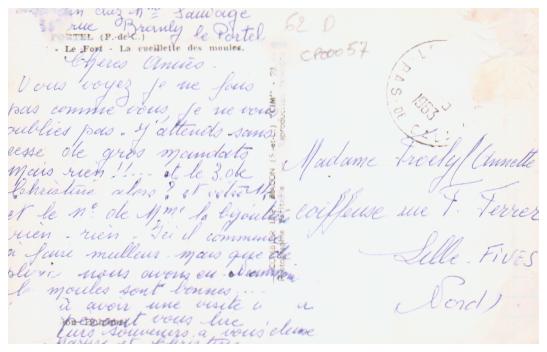 chez Mme Sauvage
rue Branly le Portel
PORTEL (P.-de-C.)
- Le Fort - La cueillette des moules.
62 D
CP00057
Chères Amies.
Vous voyez je ne fais
pas comme vous je ne vous
oublies pas. J'attends sans
cesse de gros mandats
mais rien !!... et le 3 de
Christine alors ? et
et le n° de Mme la
rien - rien. Ici il commence
à faire meilleur. mais que de
pluie nous avons eu.
le moules sont bonnes...
à avoir une visite
vous lue
leurs souvenirs à vous deux
1963
PAS DE
Madame Annette
coiffeuse rue F. Ferrer
Lille - FIVES
(Nord)